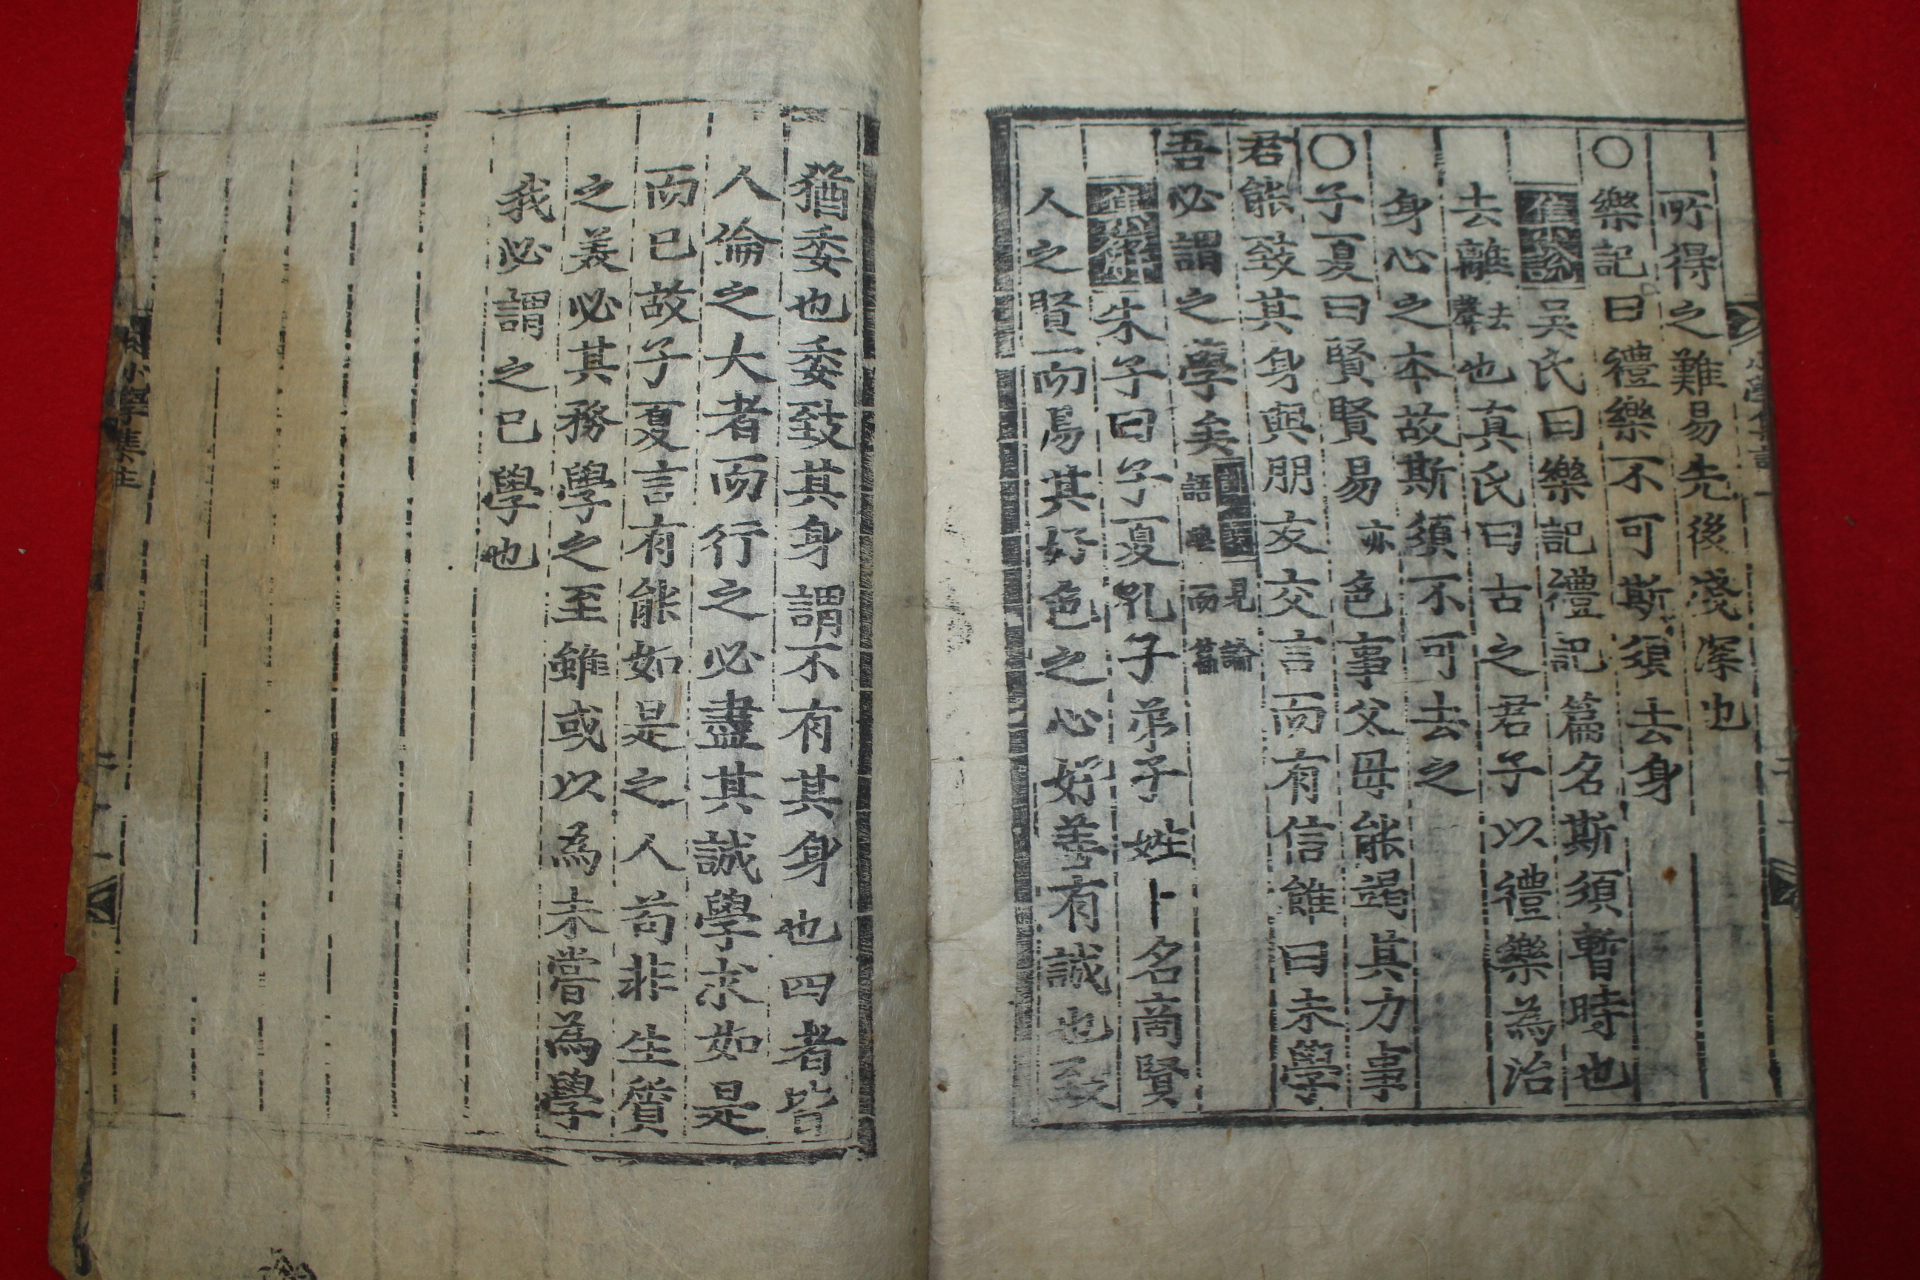 所得之難易先後淺深也
○樂記曰禮樂不可斯須去身
集說吳氏曰樂記禮記篇名斯須暫時也
去離去聲也真氏曰古之君子以禮樂為治
身心之本故斯須不可去之
○子夏曰賢賢易亦色事父母能竭其力事
君能致其身與朋友交言而有信雖曰未學
吾必謂之學矣見論語學而篇
朱子曰子夏孔子弟子姓卜名商賢
人之賢而易其好色之心好善有誠也致
猶委也委致其身謂不有其身也四者皆
人倫之大者而行之必盡其誠學求如是
而已故子夏言有能如是之人苟非生質
之美必其務學之至雖或以為未嘗為學
我必謂之已學也
小學集註